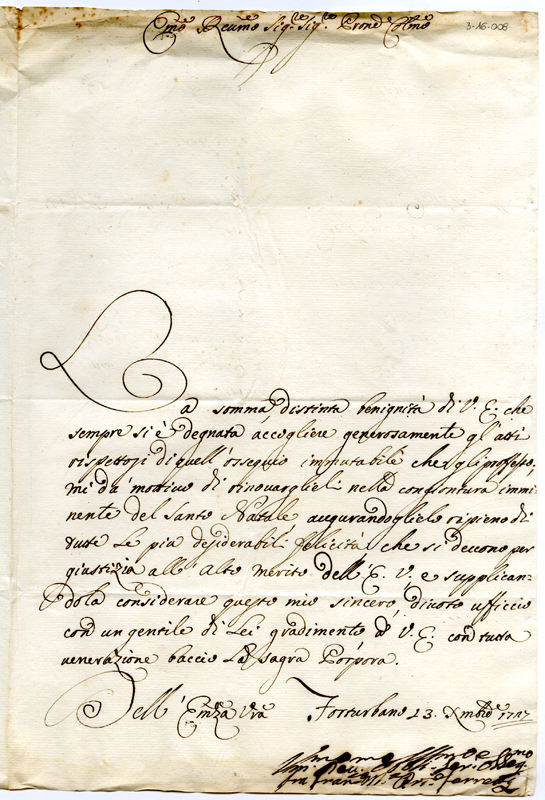 Emo Reumo Sigr. Sigr. Prone Colmo
3-16-008
La somma, distinta benignità di V. E. che
sempre si è degnata accogliere generosamente gl'atti
rispettosi di quell'ossequio immutabile che gli professo,
mi dà motivo di rinovarglieli nella congiontura immi-
nente del Santo Natale augurandoglielo ripieno di
tutte le più desiderabili felicità che si devono per
giustizia all'alto merito dell'E. V. e supplican-
dola considerare questo mio sincero, divoto ufficio
con un gentile di Lei gradimento à V. E. con tutta
venerazione baccio La sagra Porpora.
Dell'Emza Vra Forturbano 13. Xmbre 1727